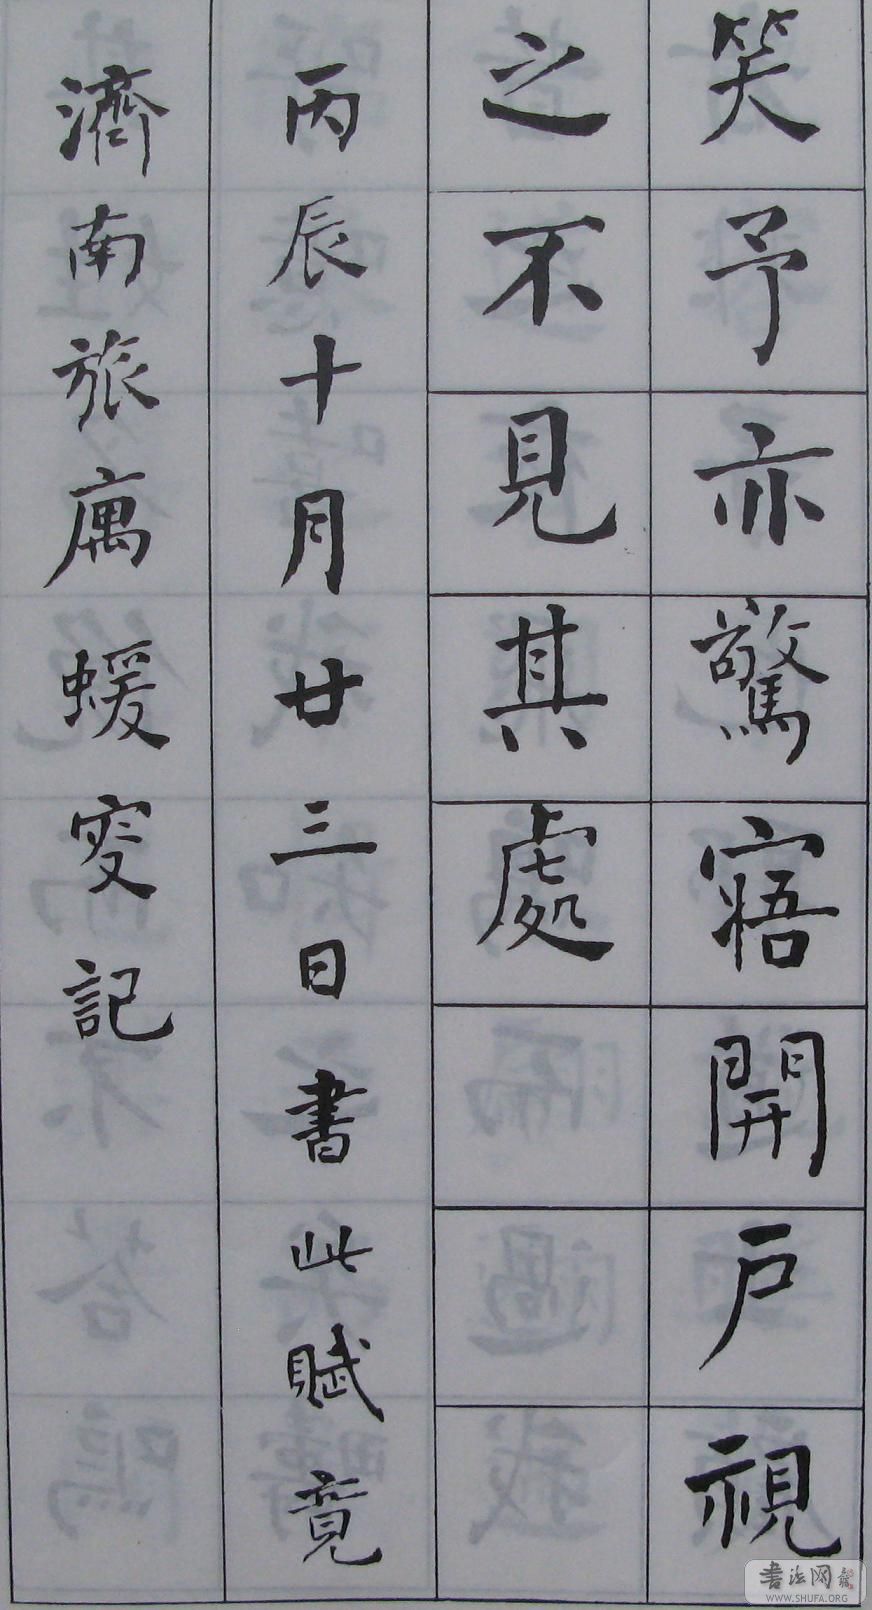 笑予亦驚寤開戶視
之不見其處
丙辰十月廿三日書此賦竟
濟南旅寓蝯叟記
书法网
WWW.SHUFA.ORG